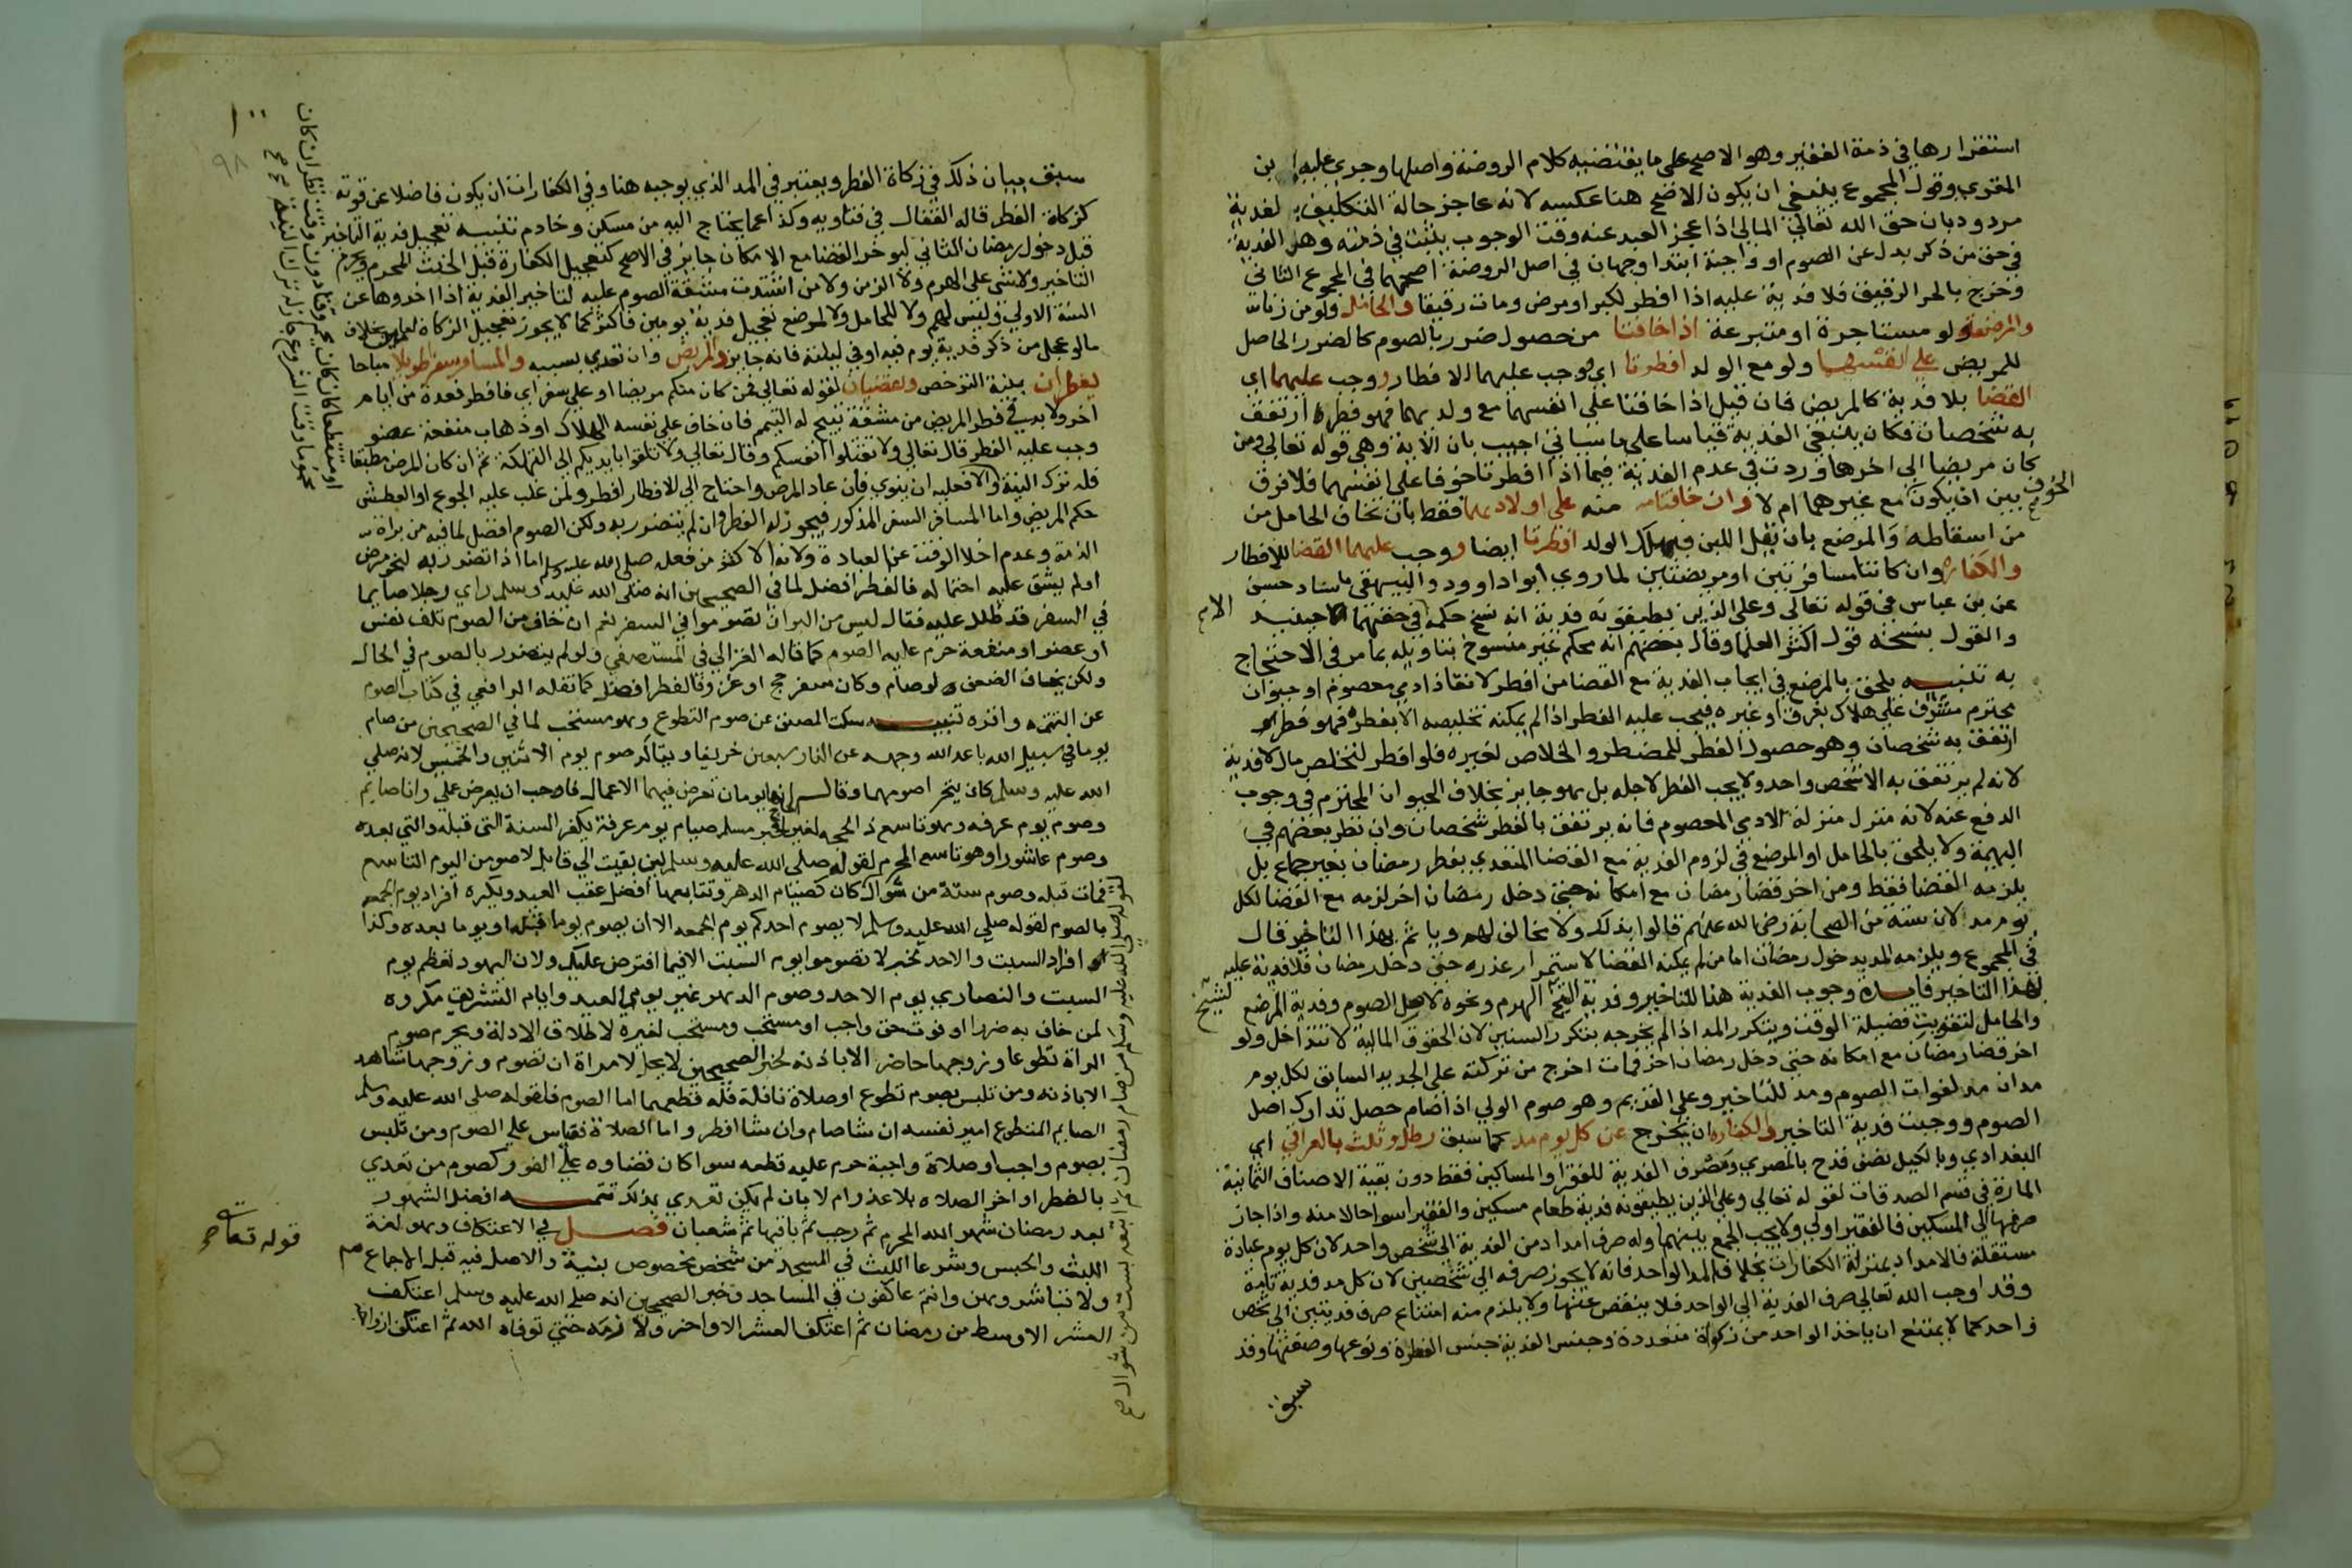 استقرارها في ذمة الفقير وهو الاصح على ما يقتضيه كلام الروضة واصلها وجرى عليه ابن
المقري وقول المجموع ينبغي ان يكون الاصح هنا عكسه لانه عاجز حالة التكليف بالفدية
مردود بان حق الله تعالى المالي اذا عجز العبد عنه وقت الوجوب يثبت في ذمته وهل الفدية
في حق من ذكر بدل عن الصوم او واجبة ابتدا وجهان في اصل الروضة اصحهما في المجموع الثاني
وخرج بالحر الرقيق فلا فدية عليه اذا افطر لكبر او مرض ومات رقيقا والحامل ولو من زنا
والمرضع ولو مستاجرة او متبرعة اذا خافتا من حصول ضرر بالصوم كالضرر الحاصل
للمريض على انفسهما ولو مع الولد افطرتا اي وجب عليهما الافطار ووجب عليهما اي
القضا بلا فدية كالمريض فان قيل اذا خافتا على انفسهما مع ولديهما فهو فطر ارتفق
به شخصان فكان ينبغي الفدية قياسا على ما سياتي اجيب بان الاية وهي قوله تعالى ومن
كان مريضا الى اخرها وردت في عدم الفدية فيما اذا افطرتا خوفا على انفسهما فلا فرق
بين ان يكون الخوف مع غيرهما ام لا وان خافتا منه على اولادهما فقط بان تخاف الحامل من
من اسقاطه والمرضع بان يقل اللبن فيهلك الولد افطرتا ايضا ووجب عليهما القضا للافطار
والكفارة وان كانتا مسافرتين او مريضتين لما روى ابو داوود والبيهقي باسناد حسن
عن بن عباس في قوله تعالى وعلى الذين يطيقونه فدية انه نسخ حكمه في حقهما حينيد
والقول بنسخه قول اكثر العلما وقال بعضهم انه محكم غير منسوخ بتاويله بما مر في الاحتجاج
به تنبيه يلحق بالمرضع في ايجاب الفدية مع القضا من افطر لانقاذ ادمي معصوم او حيوان
محترم مشرف على هلاك بغرق او غيره فيجب عليه الفطر اذا لم يمكنه تخليصه الا بفطره فهو فطر
ارتفق به شخصان وهو حصول الفطر للمضطر والخلاص لغيره فلو افطر لتخلص مال لا فدية
لانه لم يرتفق به الا شخص واحد ولا يجب الفطر لاجله بل هو جايز بخلاف الحيوان المحترم في وجوب
الدفع عنه لانه منزل منزلة الادمي المعصوم فانه يرتفق بالفطر شخصان وان نظر بعضهم في
البهيمة ولا يلحق بالحامل او المرضع في لزوم الفدية مع القضا المتعدي بفطر رمضان بغير جماع بل
يلزمه القضا فقط ومن اخر قضا رمضان مع امكانه حتى دخل رمضان اخر لزمه مع القضا لكل
يوم مد لان ستة من الصحابة رضى الله عنهم قالوا بذلك ولا مخالف لهم وياثم بهذا التاخير قال
في المجموع ويلزمه المد بدخول رمضان اما من لم يمكنه القضا لاستمرار عذره حتى دخل رمضان فلا فدية عليه
لهذا التاخير فايدة وجوب الفدية هنا للتاخير وفدية الشيخ الهرم ونحوه لاصل الصوم وفدية المرضع
والحامل لتفويت فضيلة الوقت ويتكرر المد اذا لم يخرجه بتكرر السنين لان الحقوق المالية لا تتداخل ولو
اخر قضا رمضان مع امكانه حتى دخل رمضان اخر فمات اخرج من تركته على الجديد السابق لكل يوم
مدان مد لفوات الصوم ومد للتاخير وعلى القديم وهو صوم الولي اذا صام حصل تدارك اصل
الصوم ووجبت فدية التاخير والكفارة ان يخرج عن كل يوم مد كما سبق رطل وثلث بالعراقي اي
البغدادي وبالكيل نصف قدح بالمصري ومصرف الفدية للفقرا والمساكين فقط دون بقية الاصناف الثمانية
المارة في قسم الصدقات لقوله تعالى وعلى الذين يطيقونه فدية طعام مسكين والفقير اسوا حالا منه واذا جاز
صرفها الى المسكين فالفقير اولى ولا يجب الجمع بينهما وله صرف امداد من الفدية الى شخص واحد لان كل يوم عبادة
مستقلة فالامداد بمنزلة الكفارات بخلاف المد الواحد فانه لا يجوز صرفه الى شخصين لان كل مد فدية تامة
وقد اوجب الله تعالى صرف الفدية الى الواحد فلا ينقص عنها ولا يلزم منه امتناع صرف فديتين الى شخص
واحد كما لا يمتنع ان ياخذ الواحد من زكوات متعددة وجنس الفدية جنس الفطرة ونوعها وصفتها وقد
سبق
١٠٠
٩٨
سبق بيان ذلك في زكاة الفطر ويعتبر في المد الذي يوجبه هنا وفي الكفارات ان يكون فاضلا عن قوته
كزكاة الفطر قاله القفال في فتاويه وكذا عما يحتاج اليه من مسكن وخادم تنبيه تعجيل فدية التاخير
قبل دخول رمضان الثاني ليوخر القضا مع الامكان جايز في الاصح كتعجيل الكفارة قبل الحنث المحرم ويحرم
التاخير ولا شي على الهرم ولا الزمن ولا من اشتدت مشقة الصوم عليه لتاخير الفدية اذا اخروها عن
السنة الاولى وليس لهم ولا للحامل ولا لمرضع تعجيل فدية يومين فاكثر كما لا يجوز تعجيل الزكاة لعامين بخلاف
ما لو عجل من ذكر فدية يوم فيه او في ليلته فانه جايز والمريض وان تعدى بسببه والمسافر سفرا طويلا مباحا
يفطران بنية الترخص ويقضيان لقوله تعالى فمن كان منكم مريضا او على سفر اي فافطر فعدة من ايام
اخر ولا بد في فطر المريض من مشقة تبيح له التيمم فان خاف على نفسه الهلاك او ذهاب منفعة عضو
وجب عليه الفطر قال تعالى ولا تقتلوا انفسكم وقال تعالى ولا تلقوا بايديكم الى التهلكة ثم ان كان المرض مطبقا
فله ترك النية والا فعليه ان ينوي فان عاد المرض واحتاج الى الافطار افطر ولمن غلب عليه الجوع او العطش
حكم المريض واما المسافر السفر المذكور فيجوز له الفطر وان لم يتضرر به ولكن الصوم افضل لما فيه من براة
الذمة وعدم اخلا الوقت عن العبادة ولانه الاكثر من فعله صلى الله عليه وسلم اما اذا تضرر به لنحو مرض
او لم يشق عليه احتماله فالفطر افضل لما في الصحيحين انه صلى الله عليه وسلم راي رجلا صايما
في السفر قد ظلل عليه فقال ليس من البر ان تصوموا في السفر نعم ان خاف من الصوم تلف نفس
او عضو او منفعة حرم عليه الصوم كما قاله الغزالي في المستصفى ولو لم يتضرر بالصوم في الحال
ولكن يخاف الضعف لو صام وكان سفر حج او غزو فالفطر افضل كما نقله الرافعي في كتاب الصوم
عن التتمة واقره تنبيه سكت المصنف عن صوم التطوع وهو مستحب لما في الصحيحين من صام
يوما في سبيل الله باعد الله وجهه عن النار سبعين خريفا ويتاكد صوم يوم الاثنين والخميس لانه صلى
الله عليه وسلم كان يتحرا صومهما وقال انهما يومان تعرض فيهما الاعمال فاحب ان يعرض عملي وانا صايم
وصوم يوم عرفه وهو تاسع ذي الحجه لغير الحاج لخبر مسلم صيام يوم عرفة يكفر السنة التي قبله والتي بعده
وصوم عاشورا وهو تاسع المحرم لقوله صلى الله عليه وسلم لين بقيت الى قابل لاصومن اليوم التاسع
فمات قبله وصوم ستة من شوال كان كصيام الدهر وتتابعها افضل عقب العيد ويكره افراد يوم الجمعه
بالصوم لقوله صلى الله عليه وسلم لا يصوم احدكم يوم الجمعه الا ان يصوم يوما قبله او يوما بعده وكذا
افراد السبت والاحد لخبر لا تصوموا يوم السبت الا فيما افترض عليكم ولان اليهود تعظم يوم
السبت والنصارى يوم الاحد وصوم الدهر غير يومي العيد وايام التشريق مكروه
لمن خاف به ضررا او فوت حق واجب او مستحب ومستحب لغيره لاطلاق الادلة ويحرم صوم
المراة تطوعا وزوجها حاضر الا باذنه لخبر الصحيحين لا يحل لامراة ان تصوم وزوجها شاهد
الا باذنه ومن تلبس بصوم تطوع او صلاة نافلة فله قطعهما اما الصوم فلقوله صلى الله عليه وسلم
الصايم المتطوع امير نفسه ان شا صام وان شا افطر واما الصلاة فقياس على الصوم ومن تلبس
بصوم واجب او صلاة واجبة حرم عليه قطعه سوا كان قضاوه على الفور كصوم من تعدى
بالفطر او اخر الصلاه بلا عذر ام لا بان لم يكن تعدى بذلك تتمه افضل الشهور
بعد رمضان شهر الله المحرم ثم رجب ثم باقيها ثم شعبان فصل في الاعتكاف وهو لغة
اللبث والحبس وشرعا اللبث في المسجد من شخص مخصوص بنية والاصل فيه قبل الاجماع
ولا تباشروهن وانتم عاكفون في المساجد وخبر الصحيحين انه صلى الله عليه وسلم اعتكف
العشر الاوسط من رمضان ثم اعتكف العشر الاواخر ولازمه حتى توفاه الله ثم اعتكف ازواجه
قوله تعا
لقوله صلى الله عليه وسلم من صام رمضان ثم اتبعه بست من شوال صح